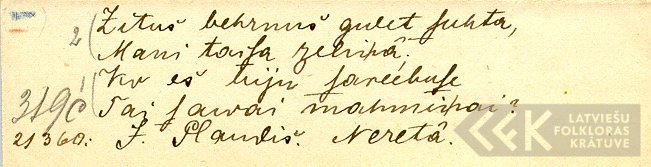 2 Zitus behrnus gulet suhta,
Mani taisa zelinhâ.
Ko es biju sareebuse
Tai sawai mahminhai?
3196
21360. J. Plaudis. Neretâ.
LATVIEŠU
FOLKLORAS
KRĀTUVE